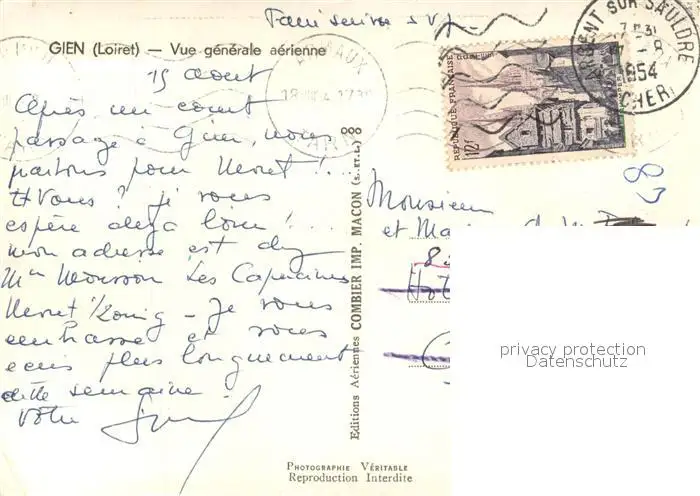 Faire suivre s v p
GIEN (Loiret) — Vue générale aérienne
15 août
Après un court
passage à Gien, nous
partons pour Meret !...
Et vous ? je vous
espère déjà loin ! ...
mon adresse est chez
Mme Les Capucines
Meret - Je vous
embrasse et vous
écris plus longuement
cette semaine.
Votre
REPUBLIQUE FRANÇAISE
12F
ARGENT SUR SAULDRE
-8
1954
CHER
Editions Aériennes COMBIER IMP. MACON (S. ET L.)
Monsieur
et
83
privacy protection
Datenschutz
PHOTOGRAPHIE VÉRITABLE
Reproduction Interdite